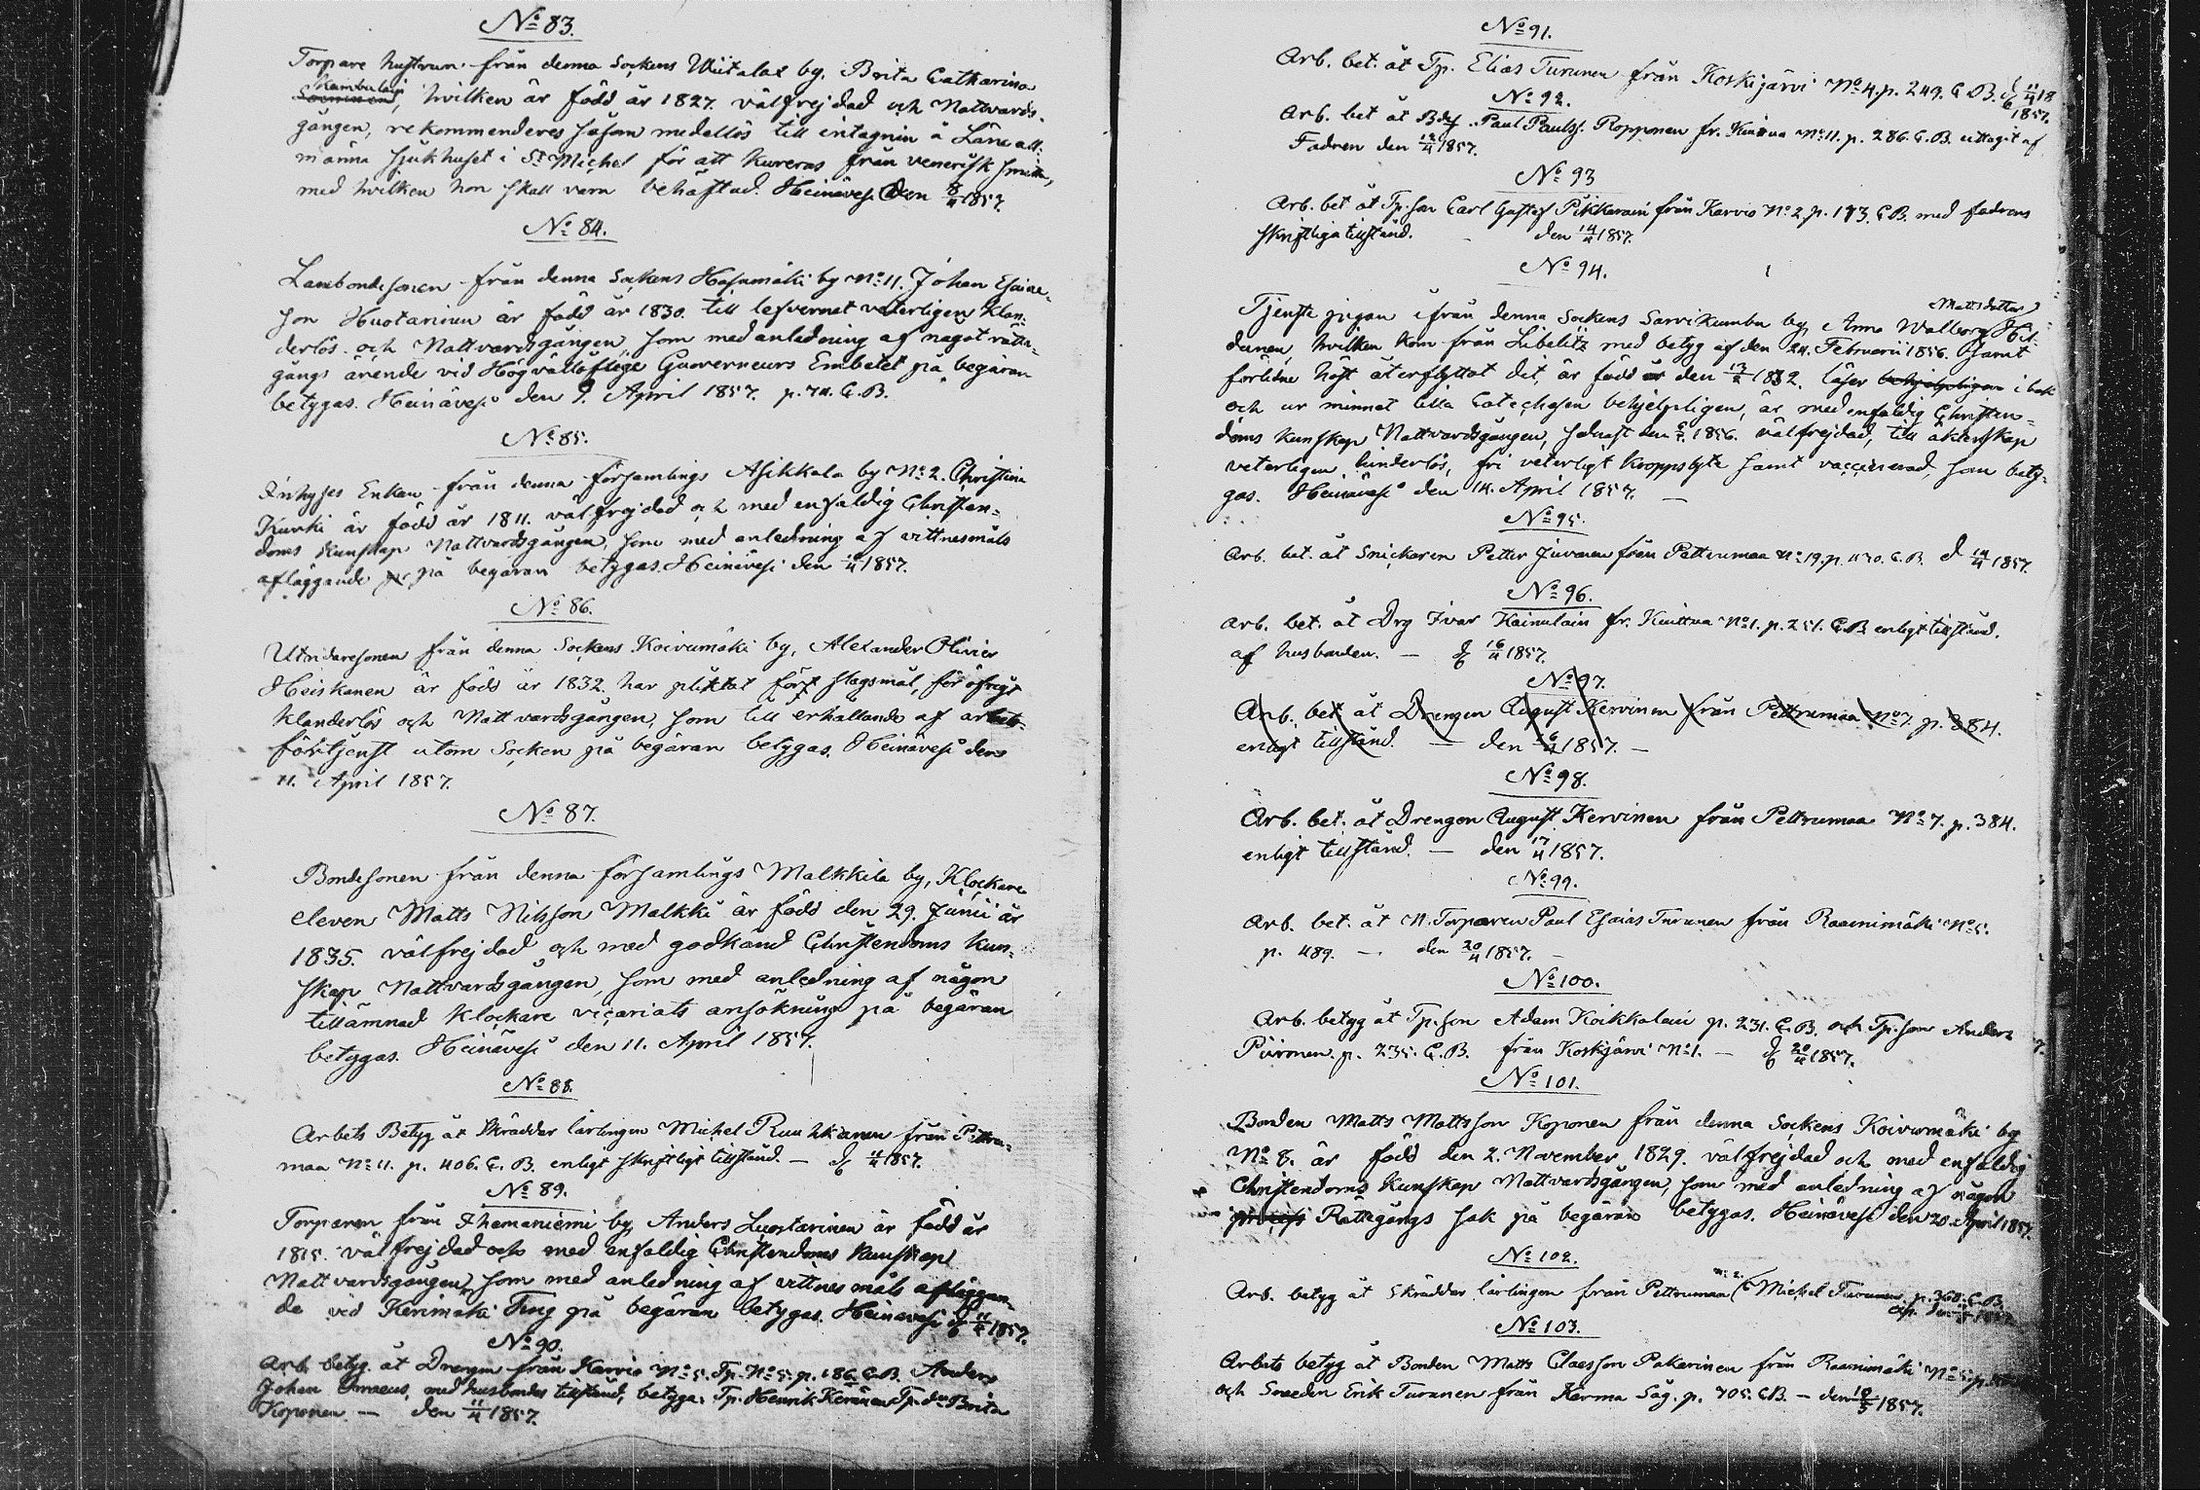 No 83.
Torpare hustrun från denna Sockens Wiitalax by, Brita Catharina
hvilken är född år 1827. välfrejdad och Nattvards-
gången, rekommenderes såsom medellös till intagnin å Läne all-
männa sjukhuset i St Michel för att kureras från venerisk smitta,
med hvilken hon skall vara behäftad. Heinävesi den 8/4 1857.
No 84.
Landbondesonen från denna Sockens Hasumäki by No 11. Johan Esaias-
son Huotarinen är född år 1830. till lefvernet veterligen klan-
derlös och Nattvardsgången, som med anledning af något rätte-
gångs ärende vid Högvällofliga Guverneurs Embetet på begäran
betygas. Heinävesi den 9. April 1857. p. 74. C.B.
No 85.
Inhyses Enkan från denna församlings Asikkala by No 2. Christina
Kurki är född år 1811. välfrejdad och med enfaldig Christen-
doms kunskap Nattvardsgången, som med anledning af vittnesmåls
afläggande på begäran betygas. Heinävesi den 10/4 1857.
No 86.
Utridaresonen från denna Sockens Koivumäki by, Alexander Olivier
Heiskanen är född år 1832. har pliktat för slagsmål, för öfrigt
klanderlös och Nattvardsgången, som till erhållande af arbets-
förtjenst utom Socken på begäran betygas. Heinävesi den
11. April 1857.
No 87.
Bondesonen från denna församlings Malkkila by, Klockare
eleven Matts Nilsson Malkki är född den 29. Junii år
1835. välfrejdad och med godkänd Christendoms kun-
skap Nattvardsgången, som med anledning af någon
tillämnad klockare vicariats ansökning på begäran
betygas. Heinävesi den 11. April 1857.
No 88.
Arbets Betyg åt Skräddar lärlingen Michel Ruuskanen från Pettru-
maa No 11. p. 406. C.B. enligt skriftligt tillstånd. — d 11/4 1857.
No 89.
Torparen från Ihamaniemi by, Anders Luostarinen är född år
1815. välfrejdad och med enfaldig Christendoms kunskap
Nattvardsgången, som med anledning af vittnesmåls afläggan-
de vid Kerimäki Ting på begäran betygas. Heinävesi d 11/4 1857.
No 90.
Arb. betyg åt Drengen från Karvio No 5. Tp. No 5. p. 186. C.B. Anders
Johan med husbondes tillstånd, betyga: Tp. Henrik Keränen Tp. Brita
Koponen — den 11/4 1857.
No 91.
Arb. bet. åt Tp. Elias Turunen från Koskijärvi No 4. p. 249. C.B. d 11/4 18
1857.
No 92.
Arb. bet åt Bds. Paul Paulss. Ropponen fr. No 11. p. 286. C.B. uttagit af
Fadren den 12/4 1857.
No 93
Arb. bet åt Tp. son Carl Gustaf Pikkarain från Karvio No 2. p. 173. C.B. med fadrens
skriftliga tillstånd. den 14/4 1857.
No 94.
Mattsdotter
Tjenste pigan ifrån denna Sockens Sarvikumbu by, Anna Walborg
hvilken kom från Libelitz med betyg af den 24. Februarii 1856. samt
förlidne höst återflyttat dit, är född den 1832. läser behjelpligen i bok
och ur minnet lilla Catechesen behjelpligen, är med enfaldig Christen-
doms kunskap Nattvardsgången, senast den 1856. välfrejdad, till äktenskap
veterligen hinderlös, fri veterligt kroppslyte samt vaccinerad, som bety-
gas. Heinävesi den 14. April 1857. —
No 95.
Arb. bet. åt Snickaren Petter Juvonen från Pettrumaa No 19. p. 430. C.B. d 14/4 1857.
No 96.
Arb. bet. åt Drg Ivar Kainulain fr. No 1. p. 251. C.B. enligt tillstånd.
af husbonden. — d 16/4 1857.
No 97.
Arb. bet åt Drengen August Kervinen från Pettrumaa No 7. p. 384.
enligt tillstånd. — den 16/4 1857. —
No 98.
Arb. bet. åt Drengen August Kervinen från Pettrumaa No 7. p. 384.
enligt tillstånd. — den 17/4 1857.
No 99.
Arb. bet. åt N. Torparen Paul Esaias Turunen från Raanimäki No 5.
p. 489. — den 20/4 1857. —
No 100.
Arb. betyg åt Tp. son Adam Koikkalain p. 231. C.B. och Tp. son Anders
Piironen p. 235. C.B. från Koskijärvi No 1. — d 20/4 1857.
No 101.
Bonden Matts Mattsson Koponen från denna Sockens Koivumäki by
No 8. är född den 2. November 1829. välfrejdad och med enfaldig
Christendoms kunskap Nattvardsgången, som med anledning af någon
process Rättegångs sak på begäran betygas. Heinävesi den 20. April 1857.
No 102.
Arb. betyg åt Skräddar lärlingen från Pettrumaa No 2. Michel Turunen p. 360. C.B.
No 103.
Arbets betyg åt Bonden Matts Claesson Pakarinen från Raanimäki No 5. p.
och Smeden Erik Turunen från Kerma Såg. p. 705. C.B. — den 10/5 1857.